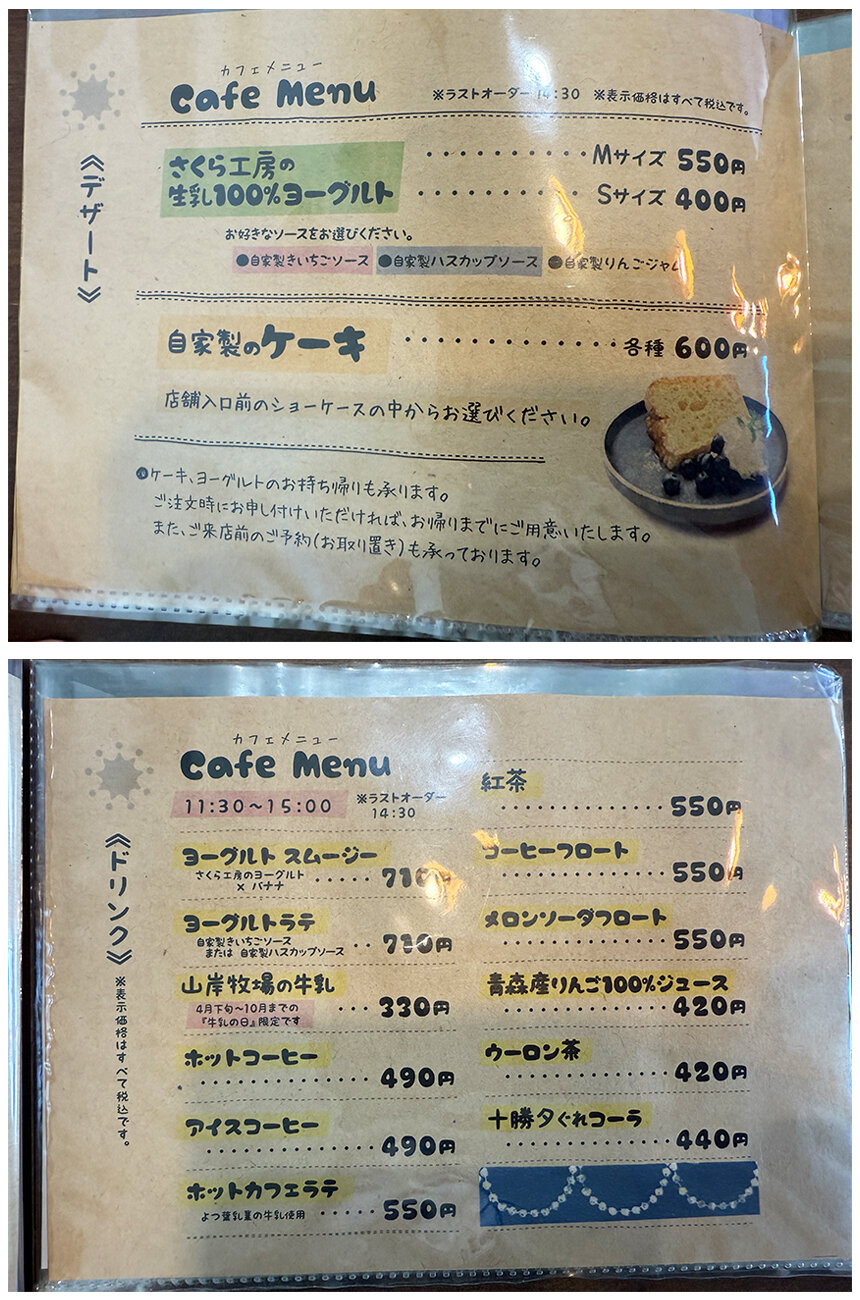 カフェメニュー
Cafe Menu
※ラストオーダー 14:30 ※表示価格はすべて税込です。
《デザート》
さくら工房の
生乳100%ヨーグルト
Mサイズ 550円
Sサイズ 400円
お好きなソースをお選びください。
●自家製きいちごソース ●自家製ハスカップソース ●自家製りんごジャム
自家製のケーキ 各種 600円
店舗入口前のショーケースの中からお選びください。
ケーキ、ヨーグルトのお持ち帰りも承ります。
ご注文時にお申し付けいただければ、お帰りまでにご用意いたします。
また、ご来店前のご予約(お取り置き)も承っております。
カフェメニュー
Cafe Menu
11:30～15:00
※ラストオーダー
14:30
《ドリンク》
※表示価格はすべて税込です。
ヨーグルト スムージー
さくら工房のヨーグルト
× バナナ
710円
ヨーグルトラテ
自家製きいちごソース
または 自家製ハスカップソース
710円
山岸牧場の牛乳
4月下旬～10月までの
『牛乳の日』限定です
330円
ホットコーヒー
490円
アイスコーヒー
490円
ホットカフェラテ
よつ葉乳業の牛乳使用
550円
紅茶
550円
コーヒーフロート
550円
メロンソーダフロート
550円
青森産りんご100%ジュース
420円
ウーロン茶
420円
十勝夕ぐれコーラ
440円